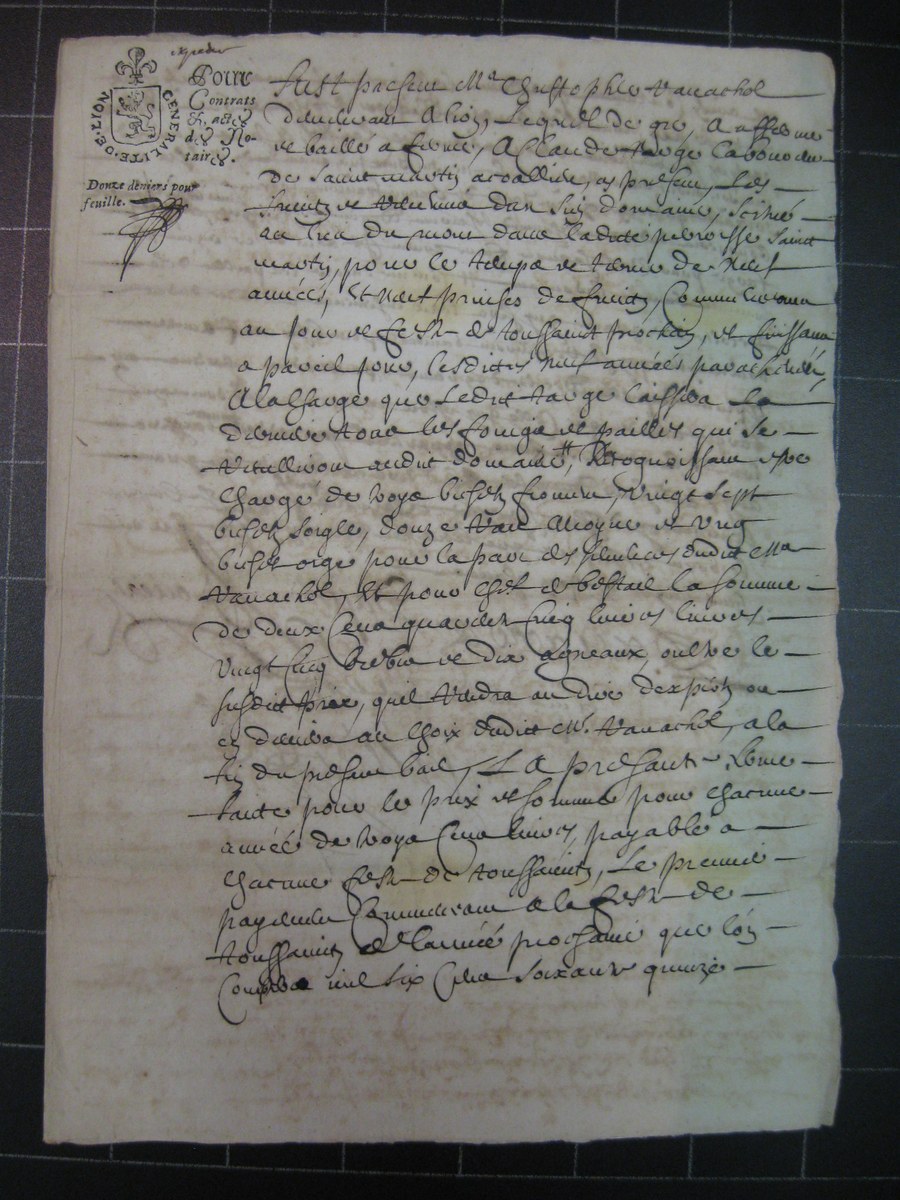 expedie
GENERALITE·DE·LION
Pour
Contrats
& actes
des No-
taires.
Douze deniers pour
feuille.
Fust present Mr. Christophle Vanachol
demeurant a lion, Lequel de gre, a affermé
et baille a ferme, A Claude laboureur
de Saint martin present, Les
fruictz et revenus d'un sien domaine, scitué
au lieu du mont dans ladicte parroisse Saint
martin, pour le temps et terme de Neuf
années, Et Neuf prinses de fruictz, Commenceant
au jour et feste de toussaint prochain, et finissant
a pareil jour, lesdictes neuf années paracheues,
A la charge que Ledit laissera La
derniere tous les foings et pailles qui se
audit domaine, Recognoissant estre
chargé de troys bichetz froment, vingt sept
bichetz soigle, douze Ras Avoyne et Ung
bichet orge pour la part des semences dudit Mr
Vanachol, Et pour Chef de bestail la somme
de deux Cens quarante Cinq livres livres
vingt Cinq brebis et dix agneaux, oultre le
susdit prix, quil rendra au dire dexpertz ou
en deniers au Choix dudit Mr. Vanachol, a la
fin du present bail, La presante ferme
faicte pour le prix et somme pour chacune
année de troys Cens livres, payable a
chacune feste de toussainctz, Le premier
payement Commenceant a la feste de
toussainctz de l'année prochaine que l'on
Comptera mil six Cens soixante quinze